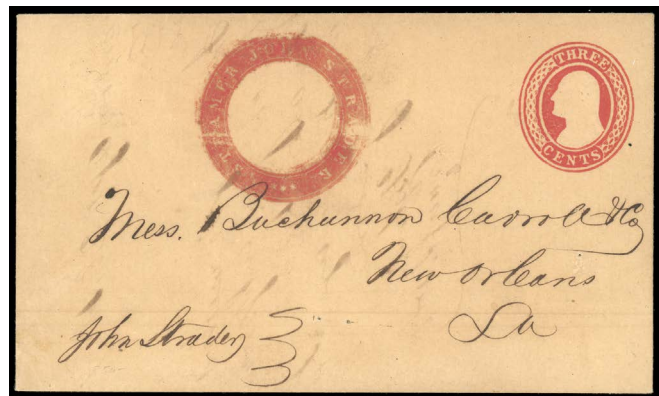 STEAMER JOHN STRADER
THREE
CENTS
Mess. Buchannon Carroll & Co
New Orleans
La
John Strader